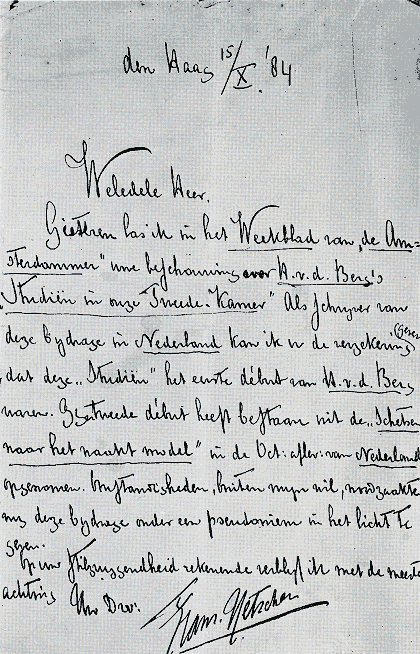 den Haag 15/X. '84
Weledele Heer.
Gisteren las ik in het Weekblad van „de Am-
sterdammer" uwe beschouwing over H.v.d. Berg's
„Studiën in onze Tweede-Kamer" Als schrijver van
deze bydrage in Nederland kan ik u de verzekering
geven
dat deze „Studiën" het eerste début van H.v.d. Berg
waren. Het tweede début heeft bestaan uit de „Schetsen
naar het naakt model" in de Oct: aflev: van Nederland
opgenomen. Omstandigheden, buiten myn wil, noodzaakten
my deze bydrage onder een pseudoniem in het licht te
geven.
Op uw stilzwygendheid rekenende verblyf ik met de meeste
achting Uw Dw:
Frans. Netscher